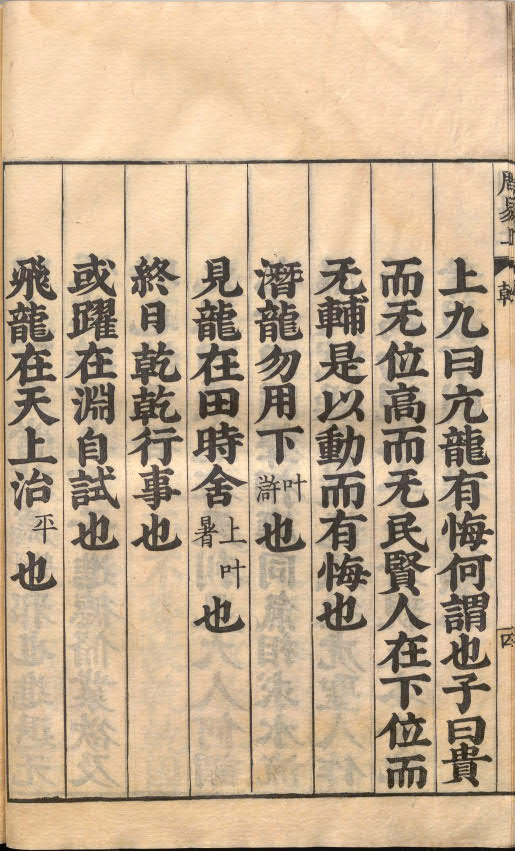 周易上
乾
四
上九曰亢龍有悔何謂也子曰貴
而无位高而无民賢人在下位而
无輔是以動而有悔也
潛龍勿用下叶滸也
見龍在田時舍上叶暑也
終日乾乾行事也
或躍在淵自試也
飛龍在天上治平也